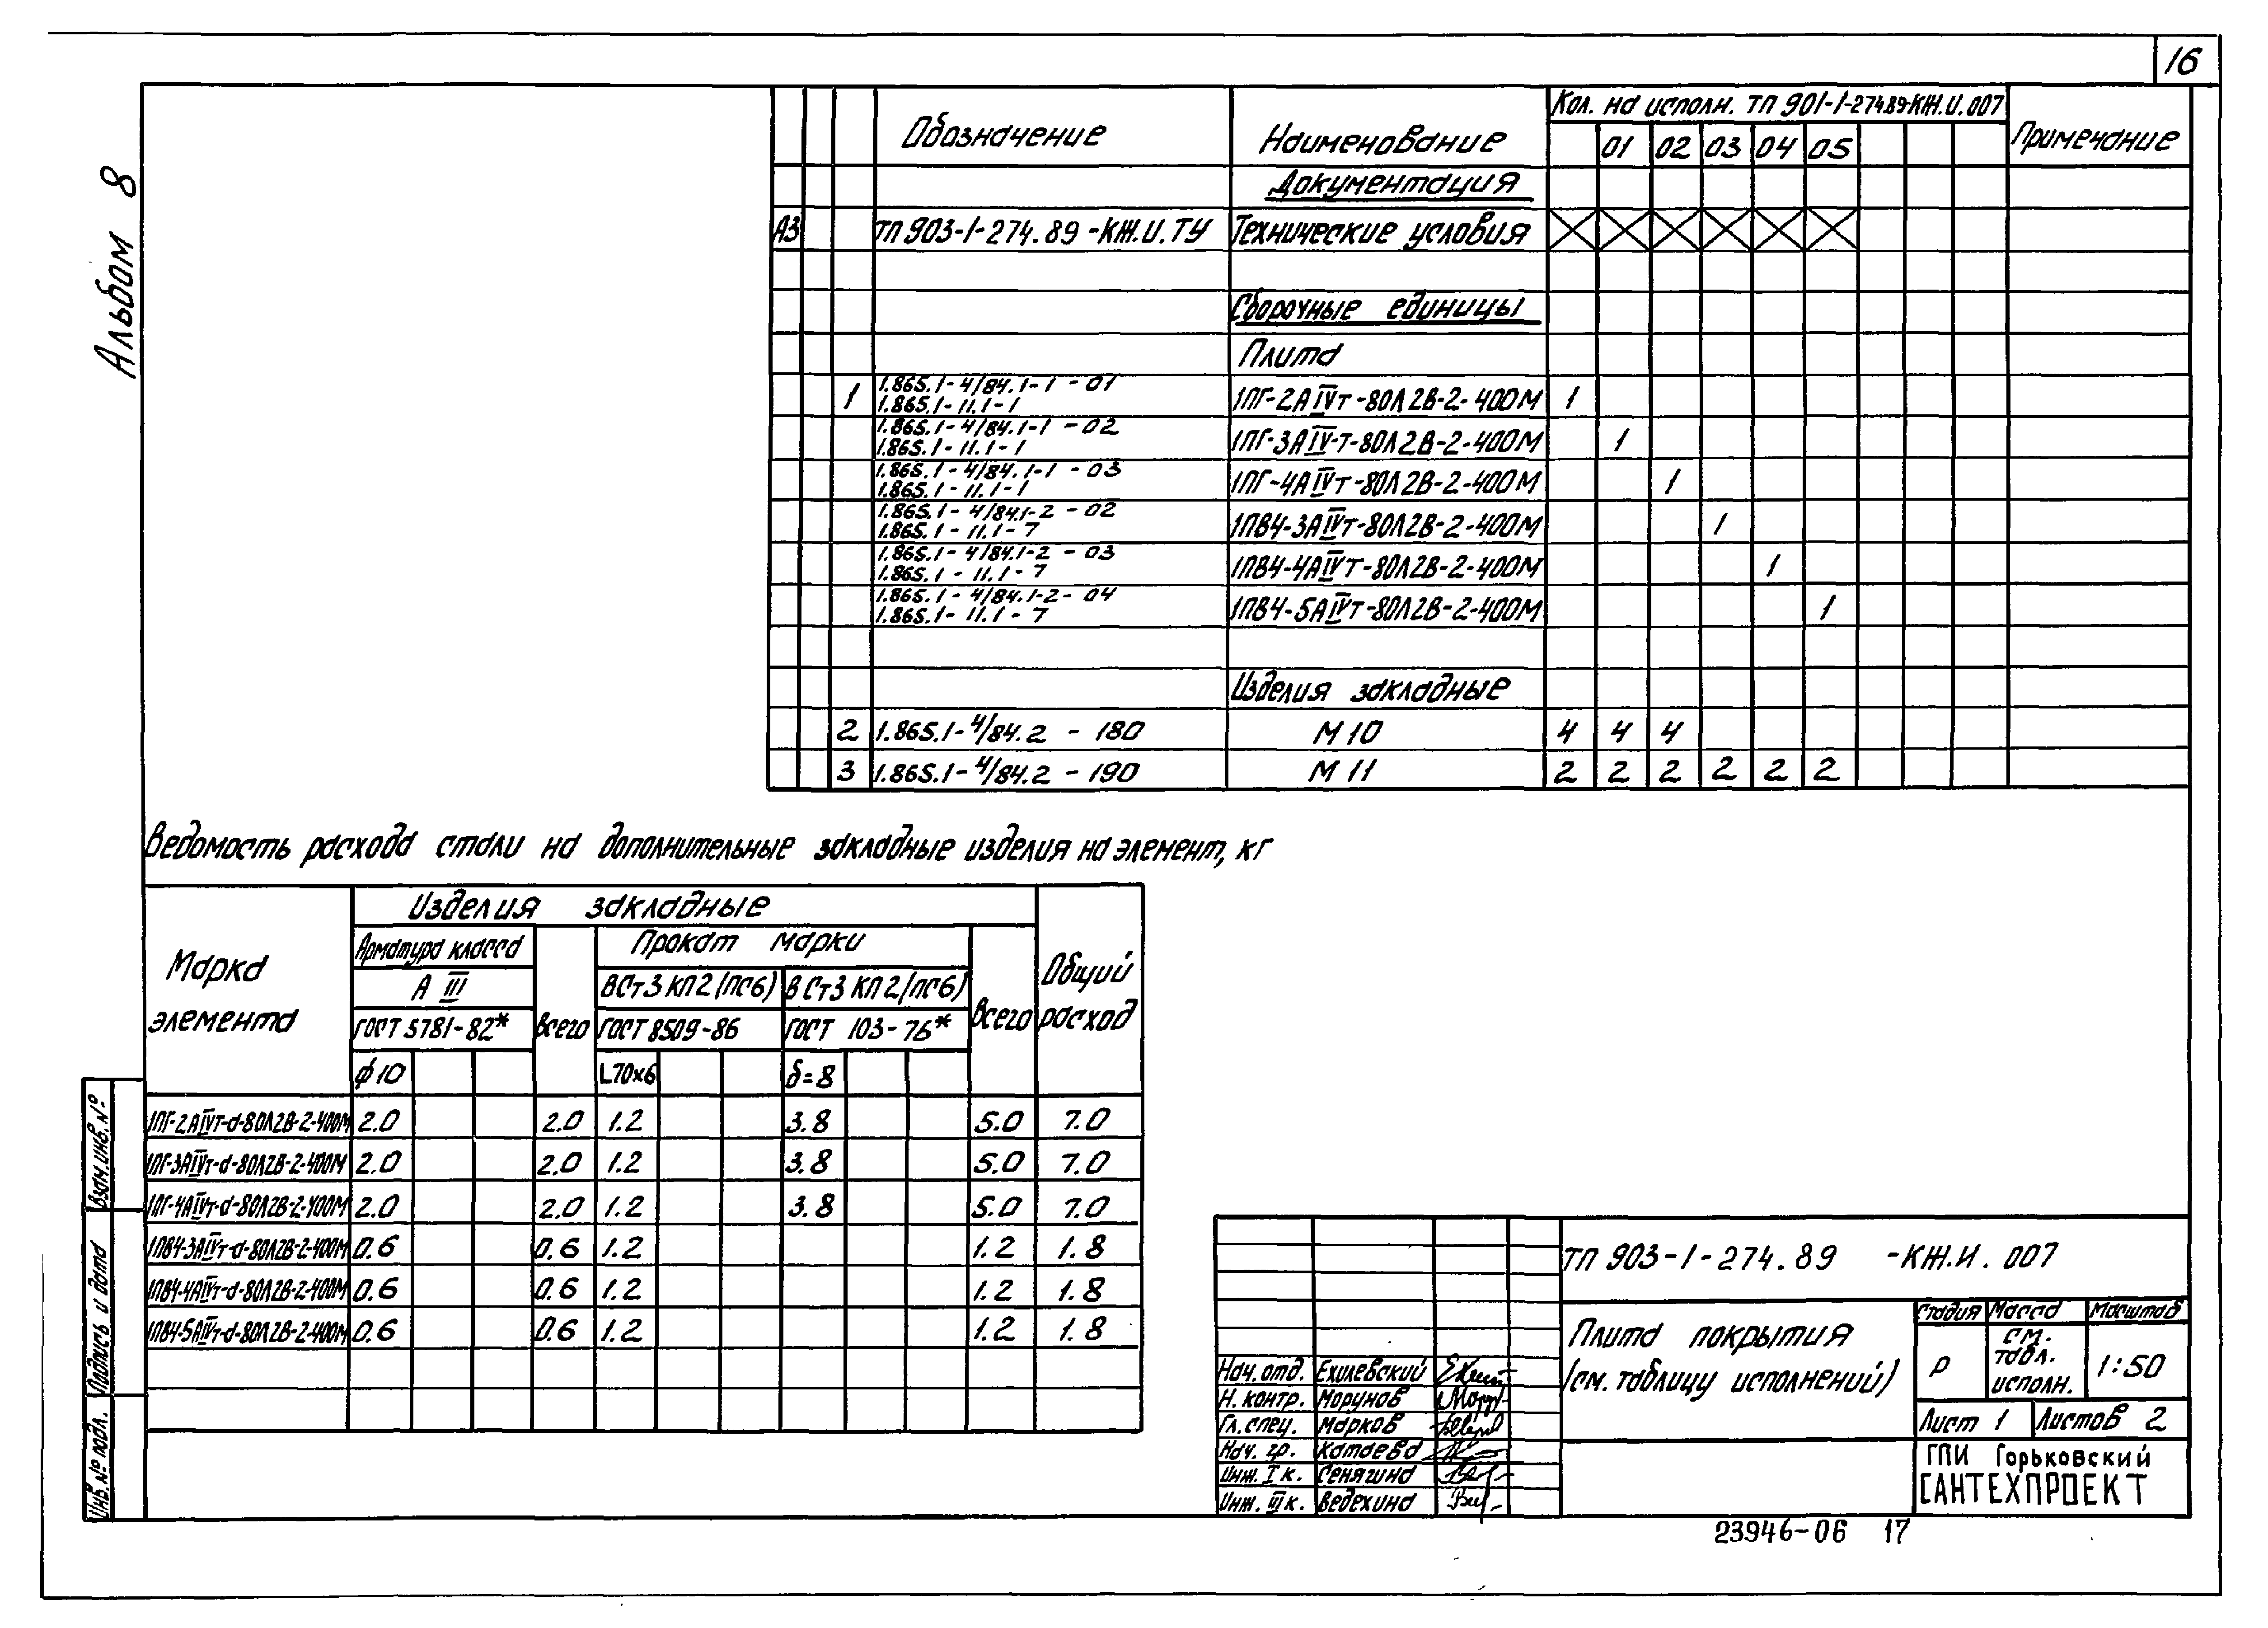 16
Альбом 8
Обозначение Наименование Кол. на исполн. ТП 901-1-274.89-КЖ.И.007 Примечание
01 02 03 04 05
Документация
А3 ТП 903-1-274.89-КЖ.И.ТУ Технические условия
Сборочные единицы
Плита
1 1.865.1-4/84.1-1-01 1ПГ-2АIVт-80Л2В-2-400М 1
1.865.1-11.1-1
1.865.1-4/84.1-1-02 1ПГ-3АIV-т-80Л2В-2-400М 1
1.865.1-11.1-1
1.865.1-4/84.1-1-03 1ПГ-4АIVт-80Л2В-2-400М 1
1.865.1-11.1-1
1.865.1-4/84.1-2-02 1ПВ4-3АIVт-80Л2В-2-400М 1
1.865.1-11.1-7
1.865.1-4/84.1-2-03 1ПВ4-4АIVт-80Л2В-2-400М 1
1.865.1-11.1-7
1.865.1-4/84.1-2-04 1ПВ4-5АIVт-80Л2В-2-400М 1
1.865.1-11.1-7
Изделия закладные
2 1.865.1-4/84.2-180 М10 4 4 4
3 1.865.1-4/84.2-190 М11 2 2 2 2 2 2
Ведомость расхода стали на дополнительные закладные изделия на элемент, кг
Марка элемента Изделия закладные Общий расход
Арматура класса Всего Прокат марки Всего
А III ВСт3КП2(ПС6) ВСт3КП2(ПС6)
ГОСТ 5781-82* ГОСТ 8509-86 ГОСТ 103-76*
ф10 L70х6 δ=8
1ПГ-2АIVт-а-80Л2В-2-400М 2.0 2.0 1.2 3.8 5.0 7.0
1ПГ-3АIVт-а-80Л2В-2-400М 2.0 2.0 1.2 3.8 5.0 7.0
1ПГ-4АIVт-а-80Л2В-2-400М 2.0 2.0 1.2 3.8 5.0 7.0
1ПВ4-3АIVт-а-80Л2В-2-400М 0.6 0.6 1.2 1.2 1.8
1ПВ4-4АIVт-а-80Л2В-2-400М 0.6 0.6 1.2 1.2 1.8
1ПВ4-5АIVт-а-80Л2В-2-400М 0.6 0.6 1.2 1.2 1.8
Взам.инв.№
Подпись и дата
Инв.№ подл.
ТП 903-1-274.89 -КЖ.И.007
Плита покрытия
(см. таблицу исполнений)
Стадия Масса Масштаб
Р см. табл. исполн. 1:50
Лист 1 Листов 2
Нач. отд. Ехилевский
Н. контр. Морунов
Гл. спец. Марков
Нач. гр. Катаева
Инж. I к. Сенягина
Инж. III к. Ведехина
ГПИ Горьковский
САНТЕХПРОЕКТ
23946-06 17